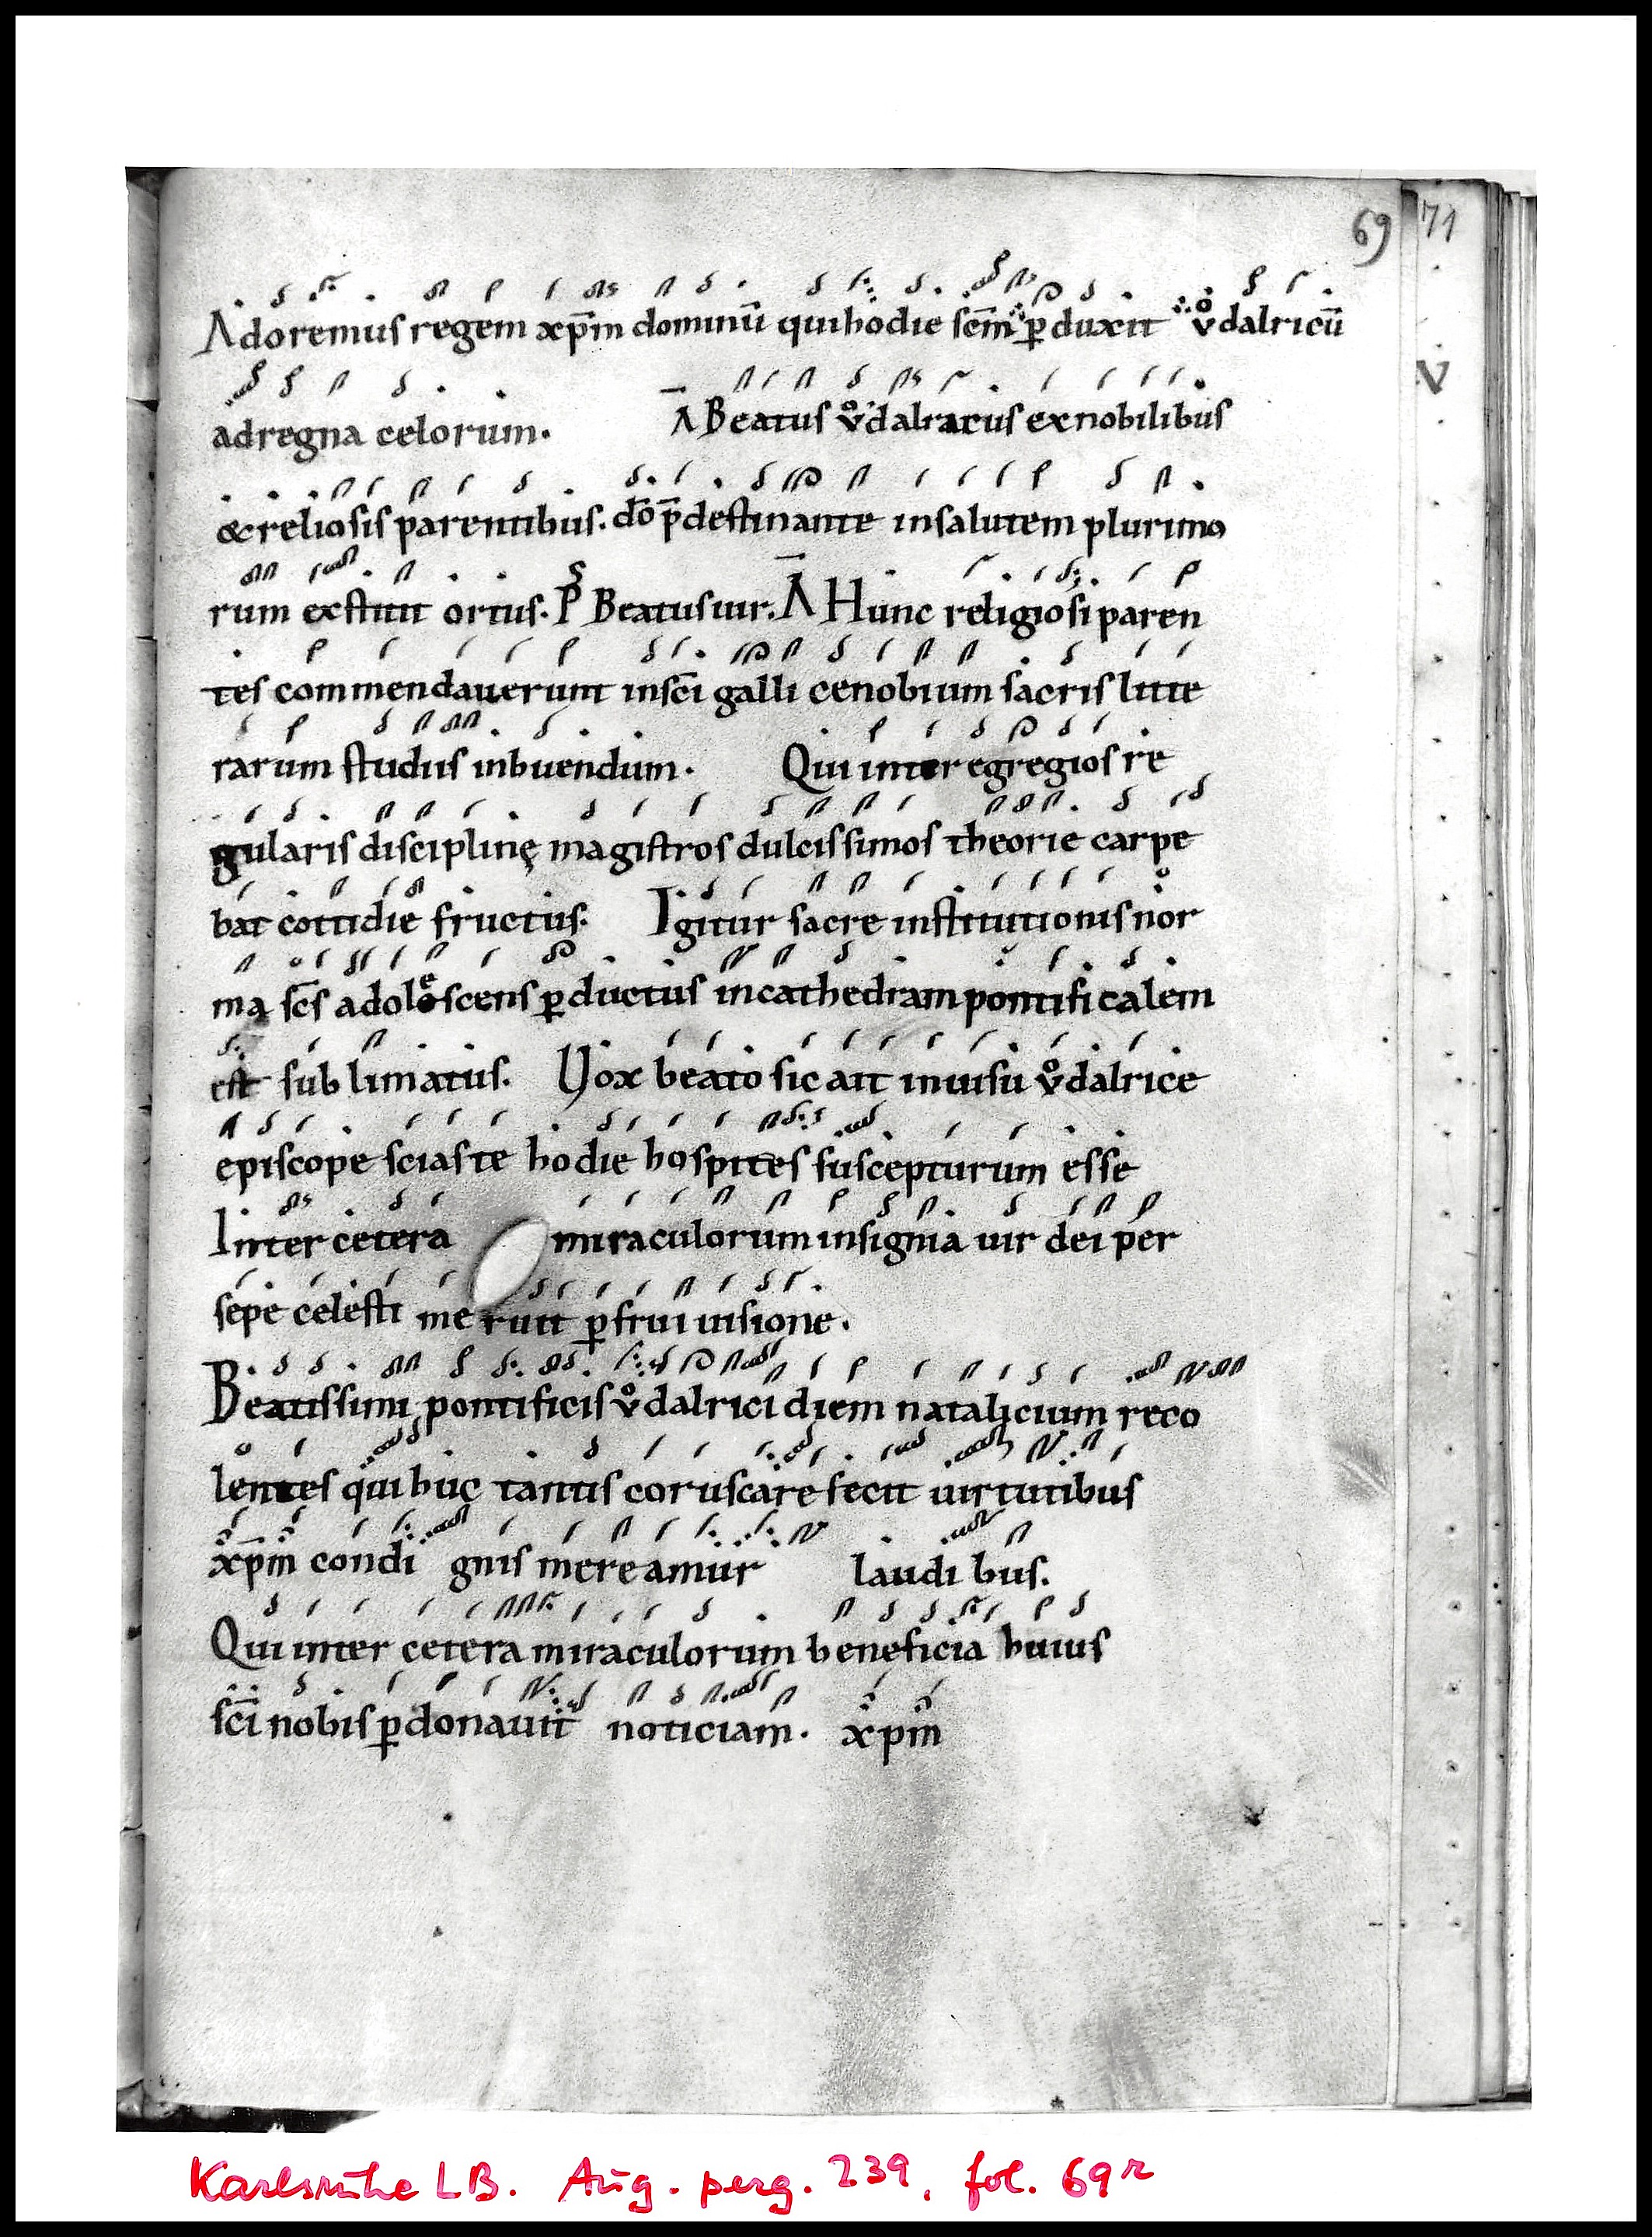 69 71
Adoremus regem xp̄m dominū qui hodie scm̄ ꝑduxit vͦdalricū
V
ad regna celorum. A Beatus vͦdalracus ex nobilibus
& reliosis parentibus. dō p̄destinante in salutem plurimo
rum exstitit ortus. P̄s Beatus uir. A Hunc religiosi paren
tes commendauerunt in scī galli cenobium sacris litte
rarum studiis inbuendum. Qui inter egregios re
gularis discipline̜ magistros dulcissimos theorie carpe
bat cottidie fructus. Igitur sacre institutionis nor
ma scs̄ adoloͤscens ꝑductus in cathedram pontificalem
est sublimatus. Vox beato sic ait in uisu vͦdalrice
episcope scias te hodie hospites suscepturum esse
Inter cetera miraculorum insignia uir dei per
sepe celesti meruit ꝑfrui uisione.
Beatissimi pontificis vͦdalrici diem natalicium reco
lentes qui huc tantis coruscare fecit uirtutibus
xp̄m condignis mereamur laudibus.
Qui inter cetera miraculorum beneficia huius
scī nobis ꝑdonauit noticiam. xp̄m
Karlsruhe LB. Aug. perg. 239, fol. 69r